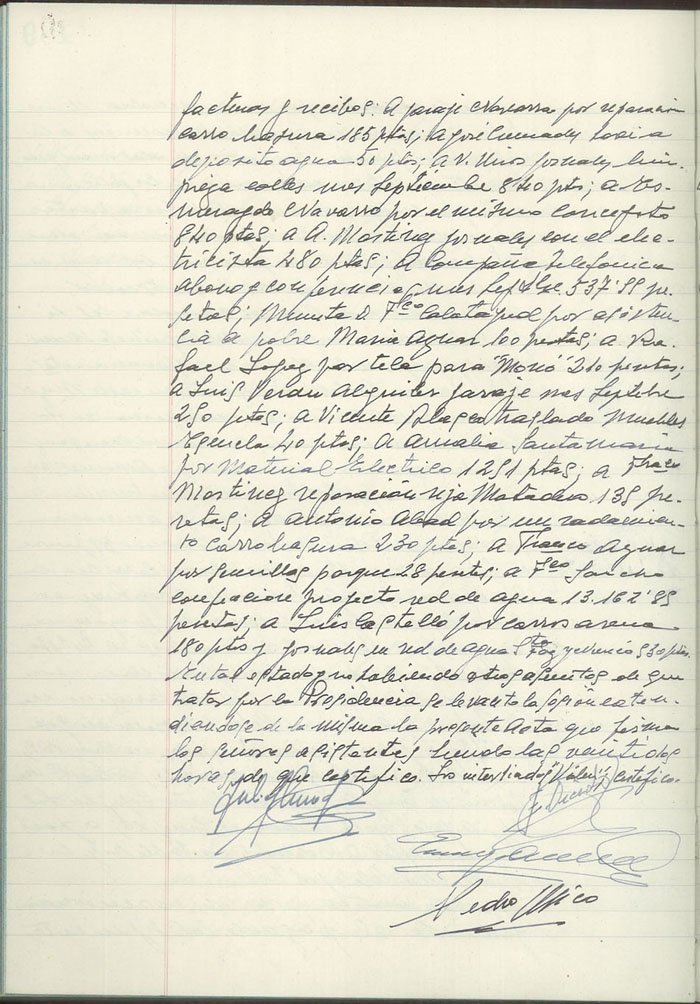 facturas y recibos: A garaje Navarra por reparacion
carro basura 185 ptas; a José
deposito agua 50 ptas; a V. Mirós jornales lim-
pieza calles mes Septiembre 840 pts; a Es-
meragdo Navarro por el mismo Concepto
840 ptas; a A. Martinez jornales con el elec-
tricista 480 ptas; a Compañia Telefonica
abono y conferencias mes Sepbre. 537'55 pe-
setas; Minuta D. Fco Calatayud por asisten-
cia a pobre Maria Aznar 100 pesetas; a Ra-
fael Lopez por tela para "Monó" 210 pesetas;
a Luis Verdu Alquiler garaje mes Septbre
250 ptas; a Vicente Blasco traslado muebles
Escuela 40 ptas; a Amalia Santamaria
por Material Electrico 1251 ptas; a Franco
Martinez reparación reja Matadero 135 pe-
setas; a Antonio Abad por un
carro basura 230 ptas; a Franco Aznar
por semillas parque 28 pesetas; a Fco Sancho
confeccion proyecto red de agua 13.162'85
pesetas; a Luis Castelló por carros arena
180 ptas y jornales en red de agua Sta Faz 530 ptas.
En tal estado y no habiendo otros asuntos de que
tratar por la Presidencia se levantó la sesión exten-
diendose de la misma la presente Acta que firman
los señores asistentes siendo las veintidos
horas, de que certifico. certifico.
Pedro Mico